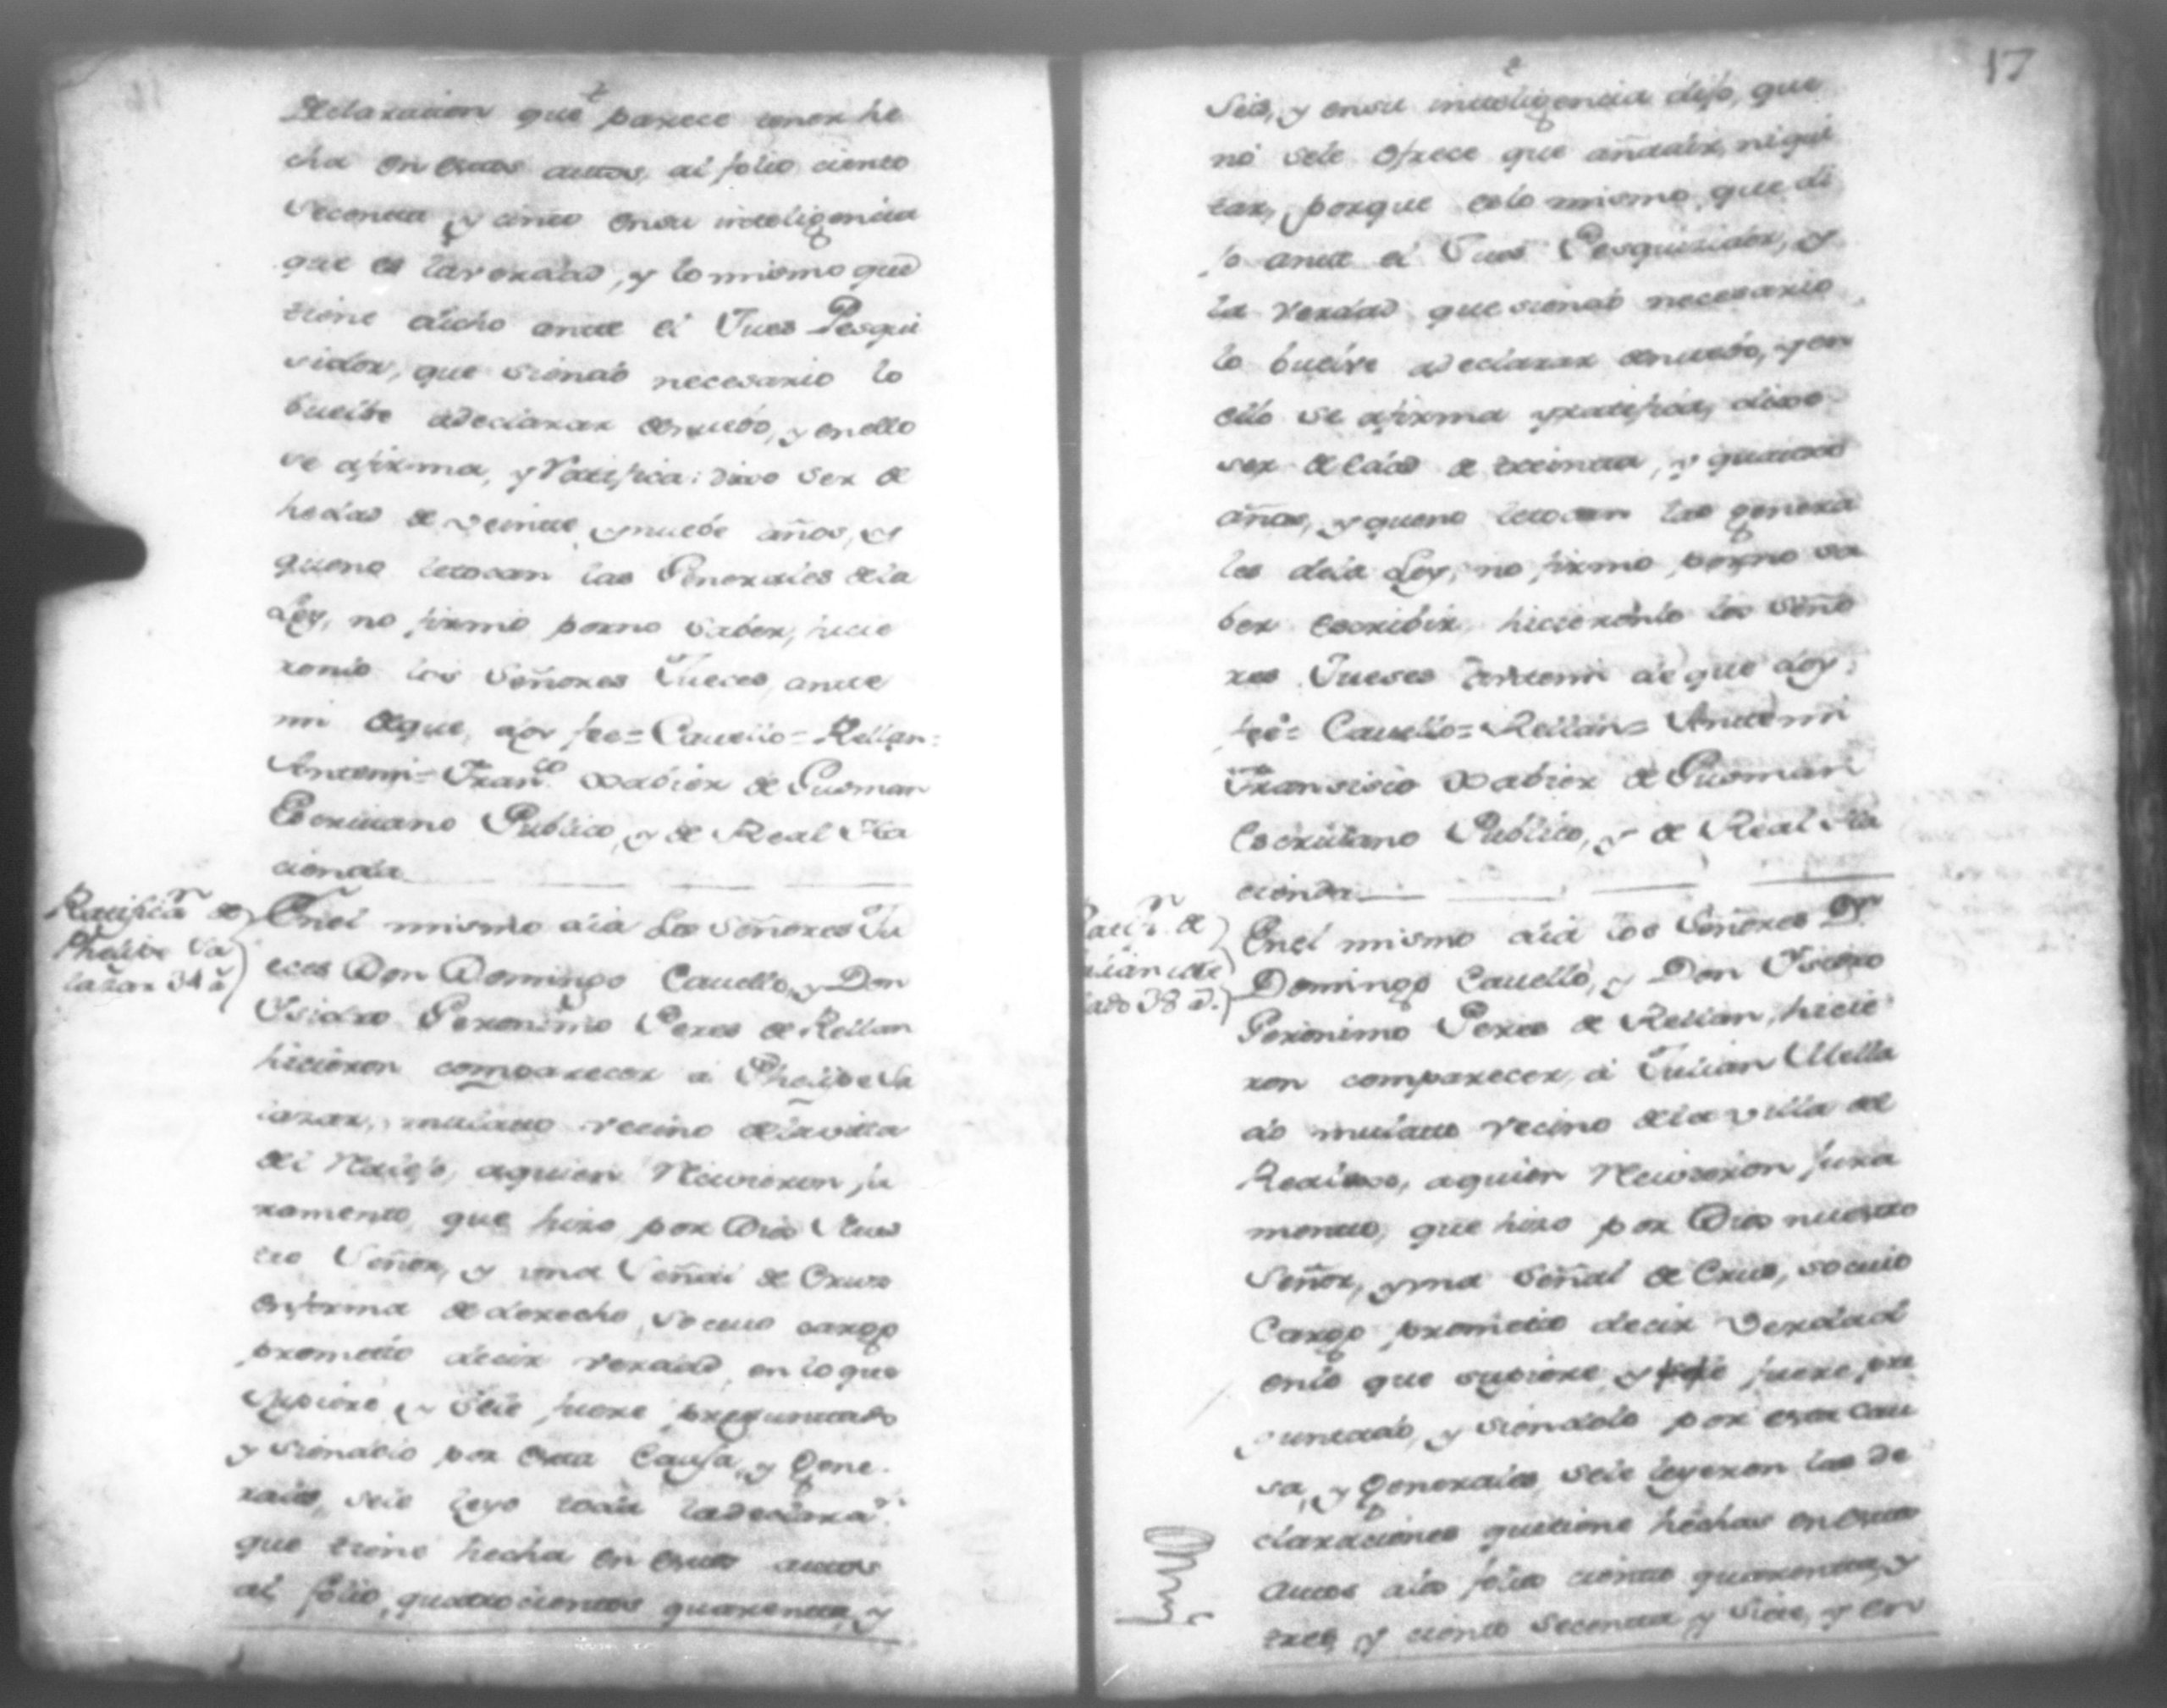 Declaracion que parece tener he
cha en estos autos, al folio ciento
secenta y cinco ensu inteligencia
que es laverdad, y lo mismo que
tiene dicho ante el Jues Pesqui
sidor, que siendo necesario lo
buelbe adeclarar denuebo, y enello
se afirma, y Ratifica: dixo ser de
hedad de veinte ynuebe años, y
queno letocan las Generales dela
Ley, no firmó porno saber, hicie
ronlo los Señores Jueces, ante
mi deque, doy fee= Cauello= Rellan=
Antemi= Fran.co Xabier de Gusman
Escriuano Publico, y de Real Ha
cienda
Ratifican de
Phelipe Sa
lazar 34 a
Enel mismo dia los señores Ju
eces Don Domingo Cauello, y Don
Isidro Geronimo Peres de Rellan
hicieron comparecer á Phelipe Sa
lazar, mulato vecino delavilla
del Realejo, aquien Recivieron ju
ramento, que hizo por Dios Nues
tro Señor, y una Señal de Cruz
enforma de derecho, so cuio cargo
prometio decir verdad, en lo que
supiere, y sele fuere preguntado
y siendolo por esta Causa, y Gene
rales, sele leyo toda ladeclaran
que tiene hecha en estos autos
al folio, quatrocientos quarenta, y
17
Seis, y ensu inteligencia dijo, que
no sele ofrece que añadir, niqui
tar, porque eslo mismo, que di
jo ante el Jues Pesquisidor, y
la verdad que siendo necesario
lo buelve adeclarar denuebo, yen
ello se afirma yratifica, dixo
ser de edad de treinta, y quatro
años, yqueno letocan las genera
les dela Ley, no firmo, porno sa
ber escribir, hicieronlo los Seño
res Jueses antemi de que doy
fee= Cauello= Rellan= Antemi
Fransisco Xabier de Gusman
Escriuano Publico, y de Real Ha
cienda
de
38 a.
Enel mismo dia los Señores Dn
Domingo Cauello, y Don Isidro
Geronimo Peres de Rellan, hicie
ron comparecer, á Julian Mella
do mulato vecino dela villa del
Realexo, aquien Recivieron jura
mento, que hizo por Dios nuestro
Señor, yuna Señal de Cruz, so cuio
Cargo prometio decir verdad
enlo que supiere, y sele fuere pre
guntado, y siendolo por esta Cau
sa, y Generales, sele leyeron las de
claraciones quetiene hechas en estos
autos alos folios ciento quarenta, y
tres, y ciento secenta y siete, y en